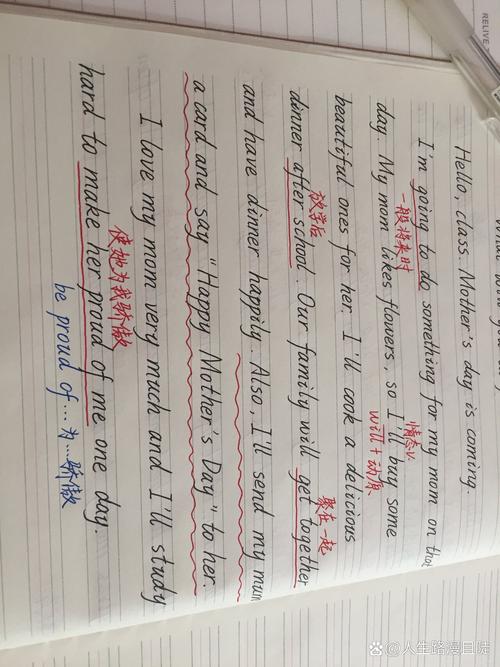 Hello, class. Mother's day is coming.
I'm going to do something for my mom on that
一般将来时
情态v.
day. My mom likes flowers, so I'll buy some
will + 动原
beautiful ones for her. I'll cook a delicious
放学后
dinner after school. Our family will get together
聚在一起
and have dinner happily. Also, I'll send my mum
a card and say "Happy Mother's Day" to her.
I love my mom very much and I'll study
使她为我骄傲
hard to make her proud of me one day.
be proud of ... 为...骄傲
RELIVE
@人生路漫目陡